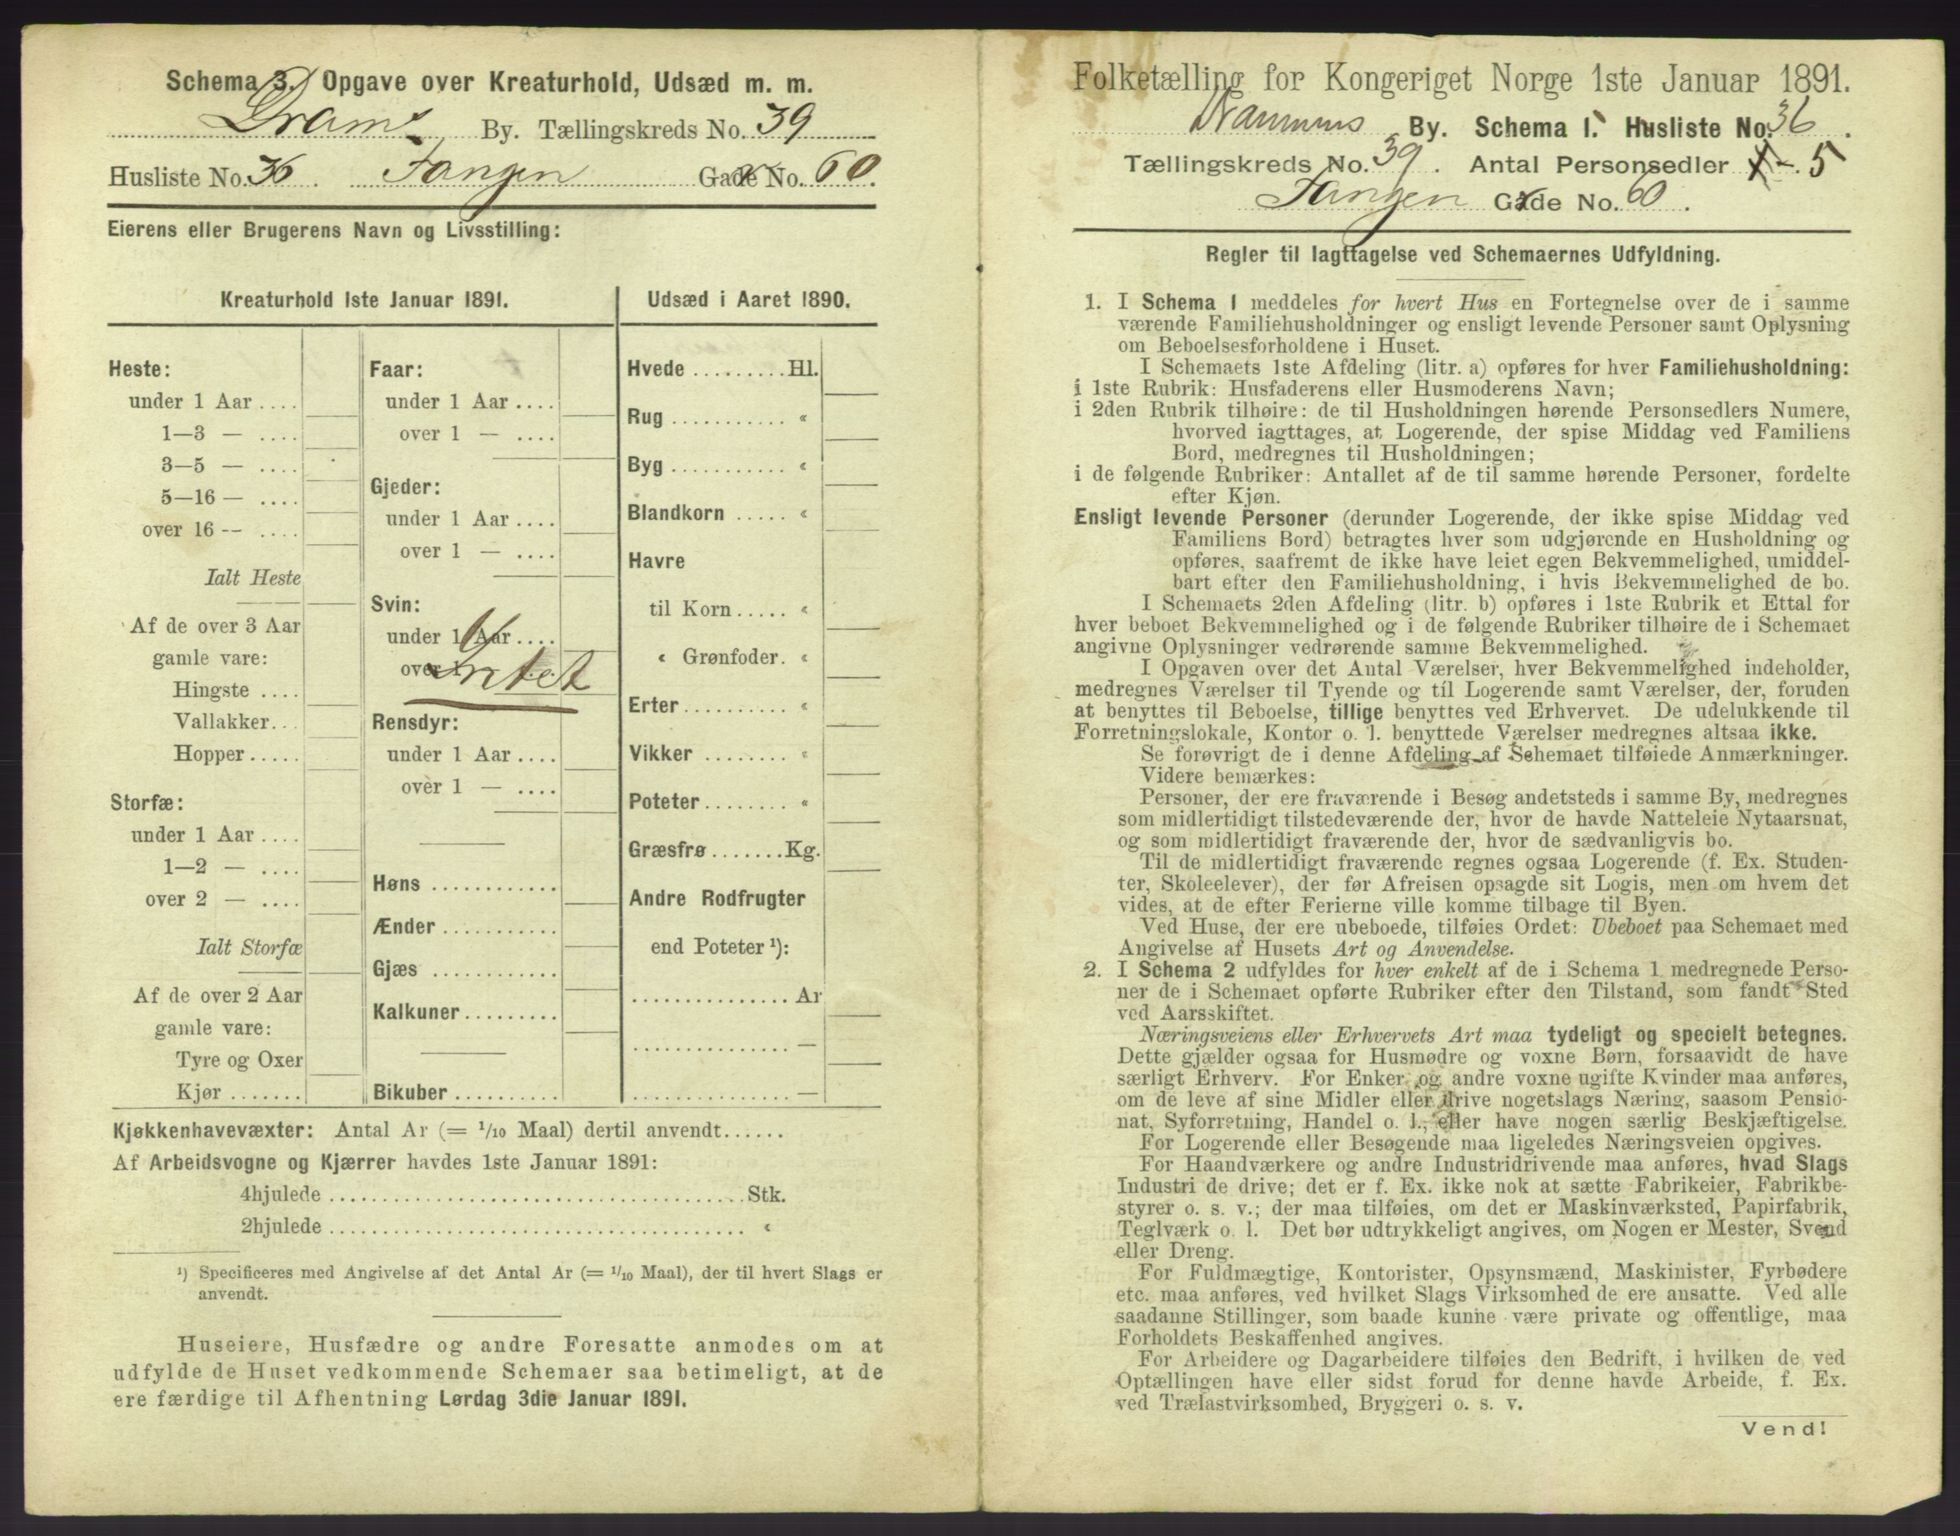 Schema 3. Opgave over Kreaturhold, Udsæd m. m.
Drams By. Tællingskreds No. 39
Husliste No. 36. Tangen Gade No. 60.
Eierens eller Brugerens Navn og Livsstilling:
Kreaturhold 1ste Januar 1891.
Heste:
under 1 Aar ....
1—3 — ....
3—5 — ....
5—16 — ....
over 16 -- ....
Ialt Heste
Af de over 3 Aar
gamle vare:
Hingste ....
Vallakker...
Hopper .....
Storfæ:
under 1 Aar ....
1—2 — ....
over 2 — ....
Ialt Storfæ
Af de over 2 Aar
gamle vare:
Tyre og Oxer
Kjør .......
Faar:
under 1 Aar ....
over 1 — ....
Gjeder:
under 1 Aar ....
over 1 — ....
Svin:
under 1 Aar ....
over
Intet
Rensdyr:
under 1 Aar ....
over 1 — ....
Høns ............
Ænder ...........
Gjæs ............
Kalkuner.........
Bikuber ..........
Udsæd i Aaret 1890.
Hvede .........Hl.
Rug ........... «
Byg ........... «
Blandkorn ..... «
Havre
til Korn ..... «
« Grønfoder. «
Erter.......... «
Vikker ........ «
Poteter........ «
Græsfrø .......Kg.
Andre Rodfrugter
end Poteter ¹):
............... Ar
............... —
............... —
Kjøkkenhavevæxter: Antal Ar (= 1/10 Maal) dertil anvendt......
Af Arbeidsvogne og Kjærrer havdes 1ste Januar 1891:
4hjulede ........................................ Stk.
2hjulede ........................................ «
¹) Specificeres med Angivelse af det Antal Ar (= 1/10 Maal), der til hvert Slags er
anvendt.
Huseiere, Husfædre og andre Foresatte anmodes om at
udfylde de Huset vedkommende Schemaer saa betimeligt, at de
ere færdige til Afhentning Lørdag 3die Januar 1891.
Folketælling for Kongeriget Norge 1ste Januar 1891.
Drammens By. Schema 1. Husliste No. 36.
Tællingskreds No. 39. Antal Personsedler 5
Tangen Gade No. 60.
Regler til Iagttagelse ved Schemaernes Udfyldning.
1. I Schema 1 meddeles for hvert Hus en Fortegnelse over de i samme
værende Familiehusholdninger og ensligt levende Personer samt Oplysning
om Beboelsesforholdene i Huset.
I Schemaets 1ste Afdeling (litr. a) opføres for hver Familiehusholdning:
i 1ste Rubrik: Husfaderens eller Husmoderens Navn;
i 2den Rubrik tilhøire: de til Husholdningen hørende Personsedlers Numere,
hvorved iagttages, at Logerende, der spise Middag ved Familiens
Bord, medregnes til Husholdningen;
i de følgende Rubriker: Antallet af de til samme hørende Personer, fordelte
efter Kjøn.
Ensligt levende Personer (derunder Logerende, der ikke spise Middag ved
Familiens Bord) betragtes hver som udgjørende en Husholdning og
opføres, saafremt de ikke have leiet egen Bekvemmelighed, umiddel-
bart efter den Familiehusholdning, i hvis Bekvemmelighed de bo.
I Schemaets 2den Afdeling (litr. b) opføres i 1ste Rubrik et Ettal for
hver beboet Bekvemmelighed og i de følgende Rubriker tilhøire de i Schemaet
angivne Oplysninger vedrørende samme Bekvemmelighed.
I Opgaven over det Antal Værelser, hver Bekvemmelighed indeholder,
medregnes Værelser til Tyende og til Logerende samt Værelser, der, foruden
at benyttes til Beboelse, tillige benyttes ved Erhvervet. De udelukkende til
Forretningslokale, Kontor o. l. benyttede Værelser medregnes altsaa ikke.
Se forøvrigt de i denne Afdeling af Schemaet tilføiede Anmærkninger.
Videre bemærkes:
Personer, der ere fraværende i Besøg andetsteds i samme By, medregnes
som midlertidigt tilstedeværende der, hvor de havde Natteleie Nytaarsnat,
og som midlertidigt fraværende der, hvor de sædvanligvis bo.
Til de midlertidigt fraværende regnes ogsaa Logerende (f. Ex. Studen-
ter, Skoleelever), der før Afreisen opsagde sit Logis, men om hvem det
vides, at de efter Ferierne ville komme tilbage til Byen.
Ved Huse, der ere ubeboede, tilføies Ordet: Ubeboet paa Schemaet med
Angivelse af Husets Art og Anvendelse.
2. I Schema 2 udfyldes for hver enkelt af de i Schema 1 medregnede Perso-
ner de i Schemaet opførte Rubriker efter den Tilstand, som fandt Sted
ved Aarsskiftet.
Næringsveiens eller Erhvervets Art maa tydeligt og specielt betegnes.
Dette gjælder ogsaa for Husmødre og voxne Børn, forsaavidt de have
særligt Erhverv. For Enker og andre voxne ugifte Kvinder maa anføres,
om de leve af sine Midler eller drive nogetslags Næring, saasom Pensio-
nat, Syforretning, Handel o. l., eller have nogen særlig Beskjæftigelse.
For Logerende eller Besøgende maa ligeledes Næringsveien opgives.
For Haandværkere og andre Industridrivende maa anføres, hvad Slags
Industri de drive; det er f. Ex. ikke nok at sætte Fabrikeier, Fabrikbe-
styrer o. s. v.; der maa tilføies, om det er Maskinværksted, Papirfabrik,
Teglværk o. l. Det bør udtrykkeligt angives, om Nogen er Mester, Svend
eller Dreng.
For Fuldmægtige, Kontorister, Opsynsmænd, Maskinister, Fyrbødere
etc. maa anføres, ved hvilket Slags Virksomhed de ere ansatte. Ved alle
saadanne Stillinger, som baade kunne være private og offentlige, maa
Forholdets Beskaffenhed angives.
For Arbeidere og Dagarbeidere tilføies den Bedrift, i hvilken de ved
Optællingen have eller sidst forud for denne havde Arbeide, f. Ex.
ved Trælastvirksomhed, Bryggeri o. s. v.
Vend!